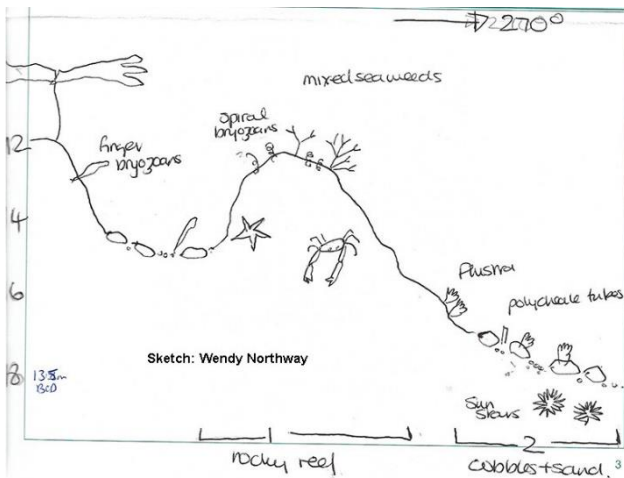 270°
mixed seaweeds
spiral
bryozoans
finger
bryozoans
12
4
6
8
Flustra
polychaete tubes
Sketch: Wendy Northway
13.5m
BCD
Sun
stars
2
rocky reef
cobbles + sand.
3